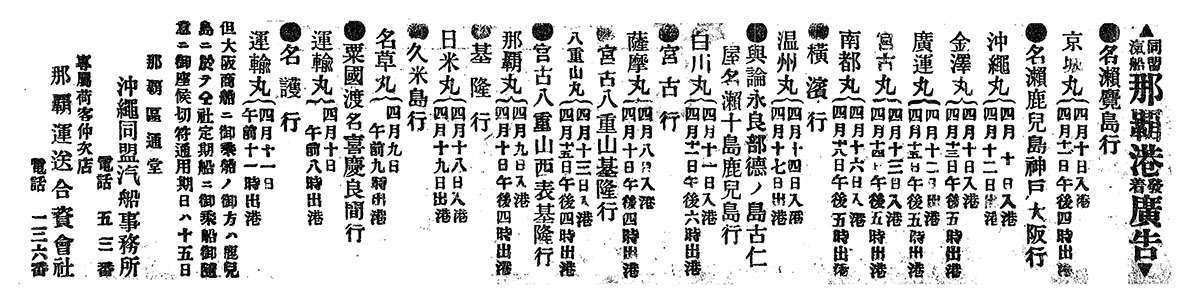 ▲同盟汽船那覇港發着廣告▼
●名瀬鹿兒島行
京城丸 四月十日入港 四月十一日午後四時出港
●名瀬鹿兒島神戸大阪行
沖繩丸 四月十日入港 四月十二日出港
金澤丸 四月十日入港 四月十三日午後五時出港
廣運丸 四月十二日入港 午後五時出港
宮古丸 四月十三日入港 午後五時出港
南都丸 四月十六日入港 四月十八日午後五時出港
●横濱行
温州丸 四月十四日入港 四月十七日出港
●與論永良部德ノ島古仁
屋名瀬十島鹿兒島行
白川丸 四月十一日入港 午後六時出港
●宮古行
薩摩丸 四月八日入港 四月十日午後四時出港
●宮古八重山基隆行
八重山丸 四月十三日入港 四月十五日午後四時出港
●宮古八重山西表基隆行
那覇丸 四月九日入港 四月十日午後四時出港
●基隆行
日米丸 四月十八日入港 四月十九日出港
●久米島行
名草丸 四月九日 午前九時出港
●粟國渡名喜慶良間行
運輸丸 四月十日 午前八時出港
●名護行
運輸丸 四月十一日 午前十一時出港
但大阪商船ニ御乘船ノ御方ハ鹿兒
島ニ於テ仝社定期船ニ御乘船御隨
意ニ御座候切符通用期日ハ十五日
那覇區通堂
沖繩同盟汽船事務所
電話 五三番
專屬荷客仲次店
那覇運送合資會社
電話 一三六番